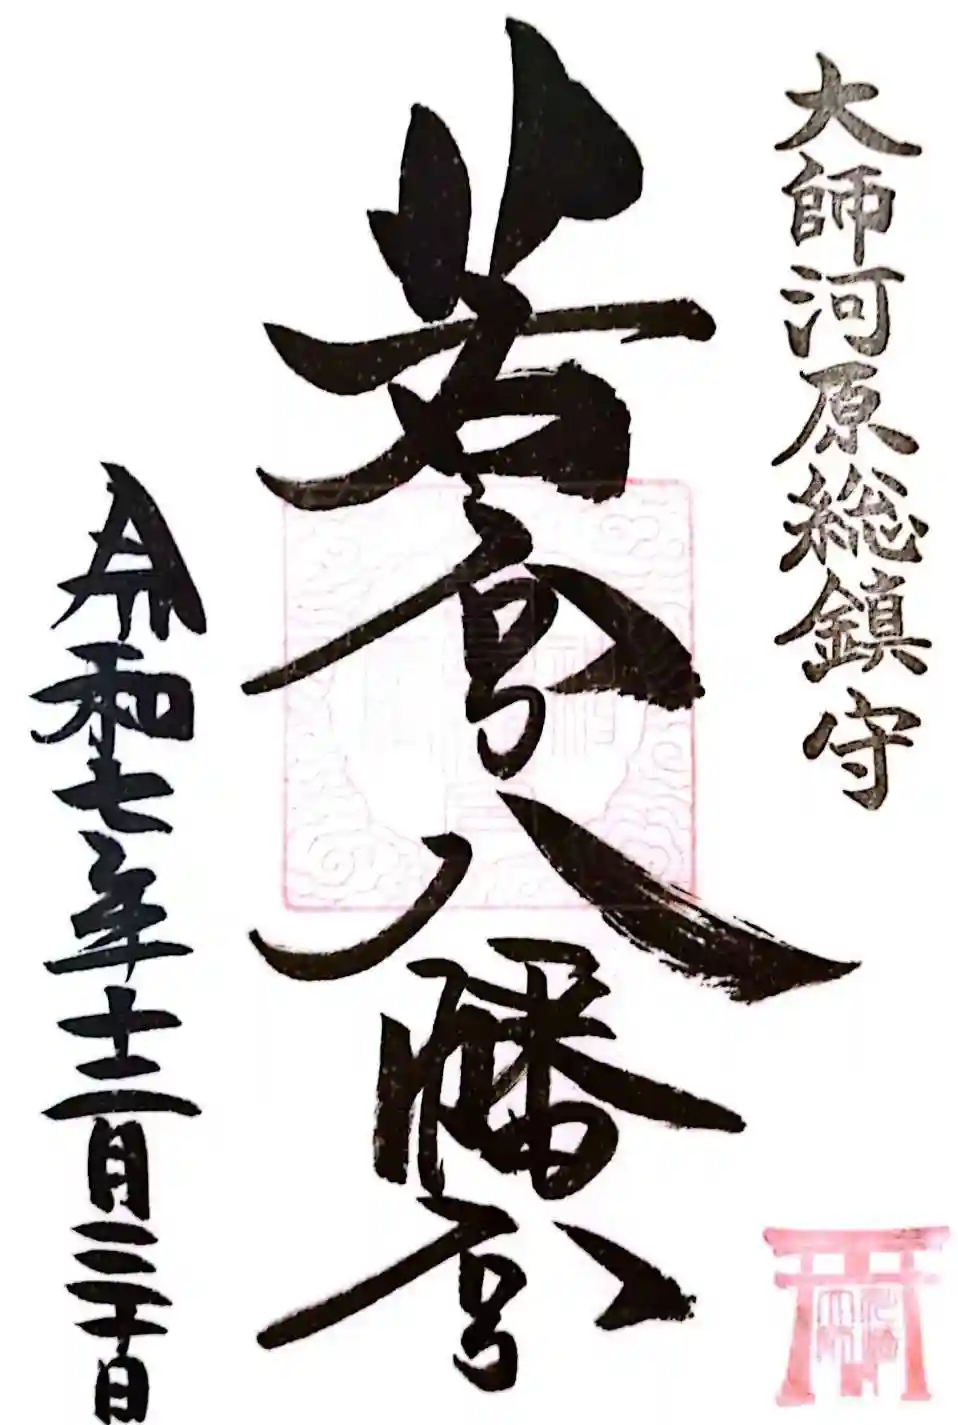 大師河原総鎮守
若宮八幡宮
令和七年十二月三十日